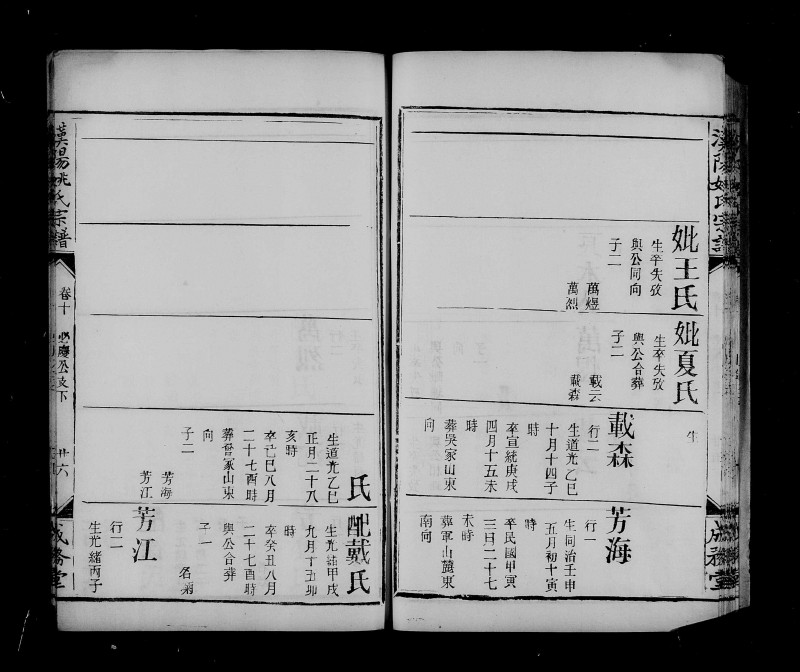 妣王氏
生卒失攷
與公同向
子二
萬煜
萬烈
妣夏氏
生卒失攷
與公合葬
子二
載云
載森
載森
行二
生道光乙巳
十月十四子
時
卒宣統庚戌
四月十五未
時
葬吳家山東
向
芳海
行一
生同治壬申
五月初十寅
時
卒民國甲寅
三日二十七
未時
葬軍山麓東
南向
漢陽姚氏宗譜
成務堂
氏
生道光乙巳
正月二十八
亥時
卒己巳八月
二十七酉時
葬魯家山東
向
子二
芳海
芳江
配戴氏
生光緒甲戌
九月十五卯
時
卒癸丑八月
二十七酉時
與公合葬
子一
芳江
行二
生光緒丙子
漢陽姚氏宗譜
卷十
廿六
成務堂